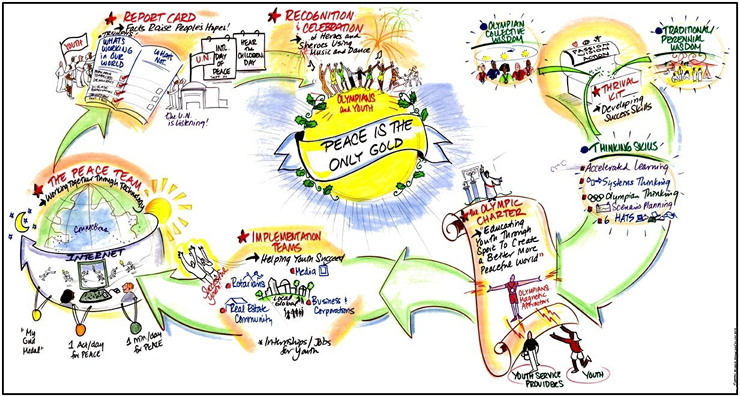 REPORT CARD
→ Facts Raise People's Hopes!
YOUTH
TRENDING
WHAT'S
WORKING
IN OUR
WORLD
WHAT'S
NOT
U.N.
INTL
DAY
OF
PEACE
HEAR
THE
CHILDREN
DAY
the U.N.
is Listening!
RECOGNITION
& CELEBRATION
→ of Heroes and
Sheroes Using
Music and Dance
OLYMPIANS
and YOUTH
PEACE IS THE
ONLY GOLD
OLYMPIAN
COLLECTIVE
WISDOM
PASSION
ACTION
TRADITIONAL
PERENNIAL
WISDOM
THRIVAL
KIT
→ Developing
Success Skills
THINKING SKILLS
Accelerated Learning
Systems Thinking
Olympian Thinking
Scenario Planning
6 HATS
the OLYMPIC
CHARTER
→ Educating
Youth Through
Sport To Create
a Better More
Peaceful World"
OLYMPIANS
Magnetic
Attractors
YOUTH SERVICE
PROVIDERS
YOUTH
IMPLEMENTATION
TEAMS
→ Helping Youth Succeed
Media
Rotarians
Local
Global
Real Estate
Community
Business &
Corporations
* Internships/Jobs
for Youth
THE PEACE TEAM
→ Working Together Through Technology
Connections
INTERNET
"My
Gold
Medal"
1 Act/day
for PEACE
1 min/day
for PEACE